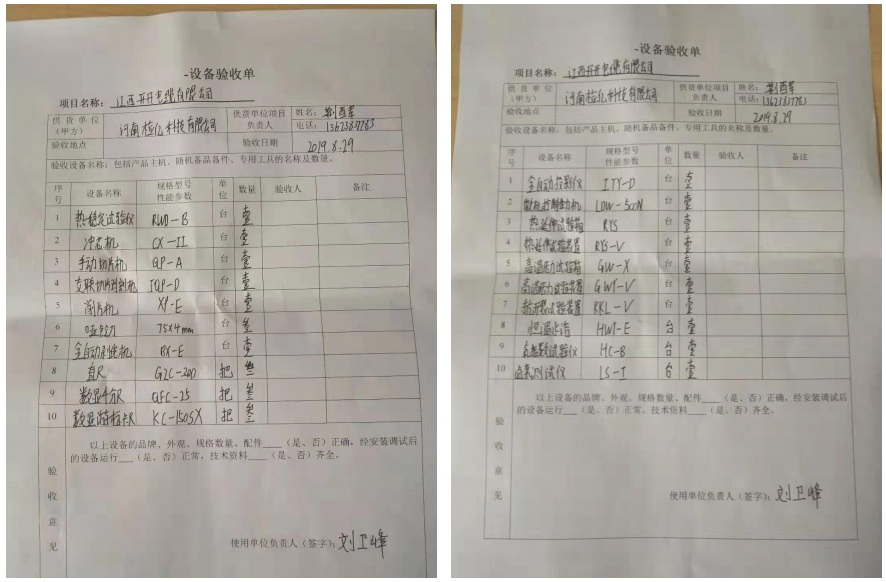 -设备验收单
项目名称: 江西开开电缆有限公司
供货单位（甲方） 河南检亿科技有限公司 供货单位项目负责人 姓名:
电话: 13623837783
验收地点 验收日期 2019.8.29
验收设备名称: 包括产品主机、随机备品备件、专用工具的名称及数量。
序号 设备名称 规格型号性能参数 单位 数量 验收人 备注
1 热稳定试验仪 RWD-B 台 壹
2 冲芯机 CX-II 台 壹
3 手动切片机 QP-A 台 壹
4 交联切片机 JQP-D 台 壹
5 削片机 XP-E 台 壹
6 哑铃刀 75X4mm 台 叁
7 全自动 机 BX-E 台 壹
8 直尺 GZC-200 把 叁
9 数显千分尺 QFC-25 把 叁
10 数显游标卡尺 KC-150SX 把 叁
验收意见
以上设备的品牌、外观、规格数量、配件____（是、否）正确，经安装调试后
的设备运行___（是、否）正常，技术资料____（是、否）齐全。
使用单位负责人（签字）: 刘卫峰
-设备验收单
项目名称: 江西开开电缆有限公司
供货单位（甲方） 河南检亿科技有限公司 供货单位项目负责人 姓名:
电话: 13623837783
验收地点 验收日期 2019.8.29
验收设备名称: 包括产品主机、随机备品备件、专用工具的名称及数量。
序号 设备名称 规格型号性能参数 单位 数量 验收人 备注
1 全自动投影仪 JTY-D 台 壹
2 微机控制 机 LDW-500N 台 壹
3 热延伸试验箱 RYS 台 壹
4 热延伸试验装置 RYS-V 台 壹
5 高温压力试验箱 GW-X 台 壹
6 高温压力试验装置 GWY-V 台 壹
7 抗开裂试验装置 KKL-V 台 壹
8 恒温水浴 HWY-E 台 壹
9 试验仪 HC-B 台 壹
10 测试仪 LS-I 台 壹
验收意见
以上设备的品牌、外观、规格数量、配件____（是、否）正确，经安装调试后
的设备运行___（是、否）正常，技术资料____（是、否）齐全。
使用单位负责人（签字）: 刘卫峰